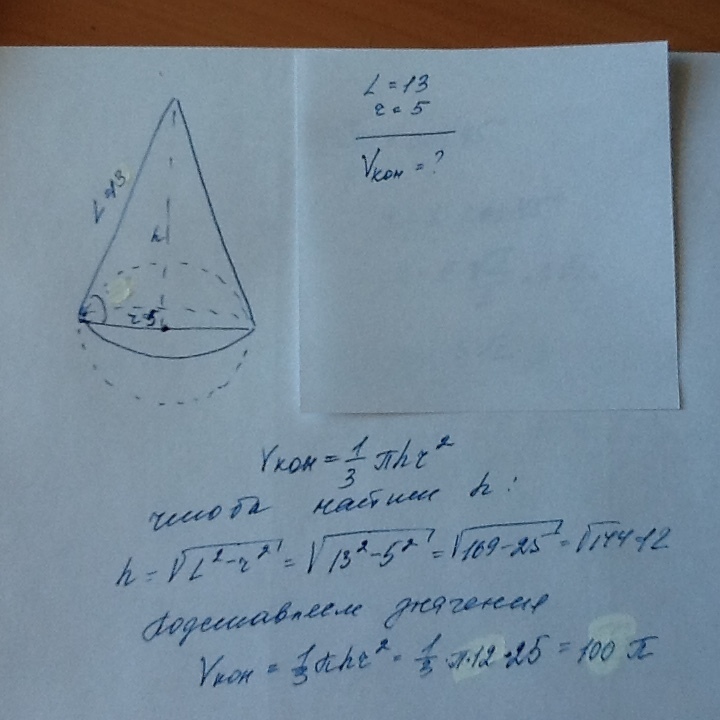 L = 13
r = 5
Vкон = ?
L = 13
h
r=5
Vкон = 1/3 πhr²
чтобы найти h:
h = √L²-r² = √13²-5² = √169-25 = √144=12
Подставляем значения
Vкон = 1/3 πhr² = 1/3 π·12·25 = 100 π